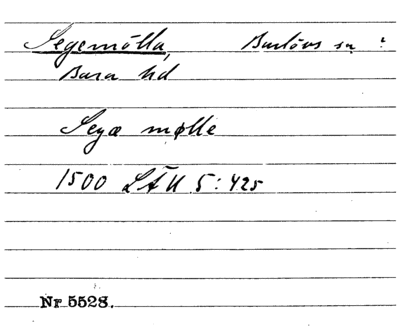 Segemölla, Burlövs sn
Bara hd
Segæ mølle
1500 LÄU 5:425
Nr 5528.